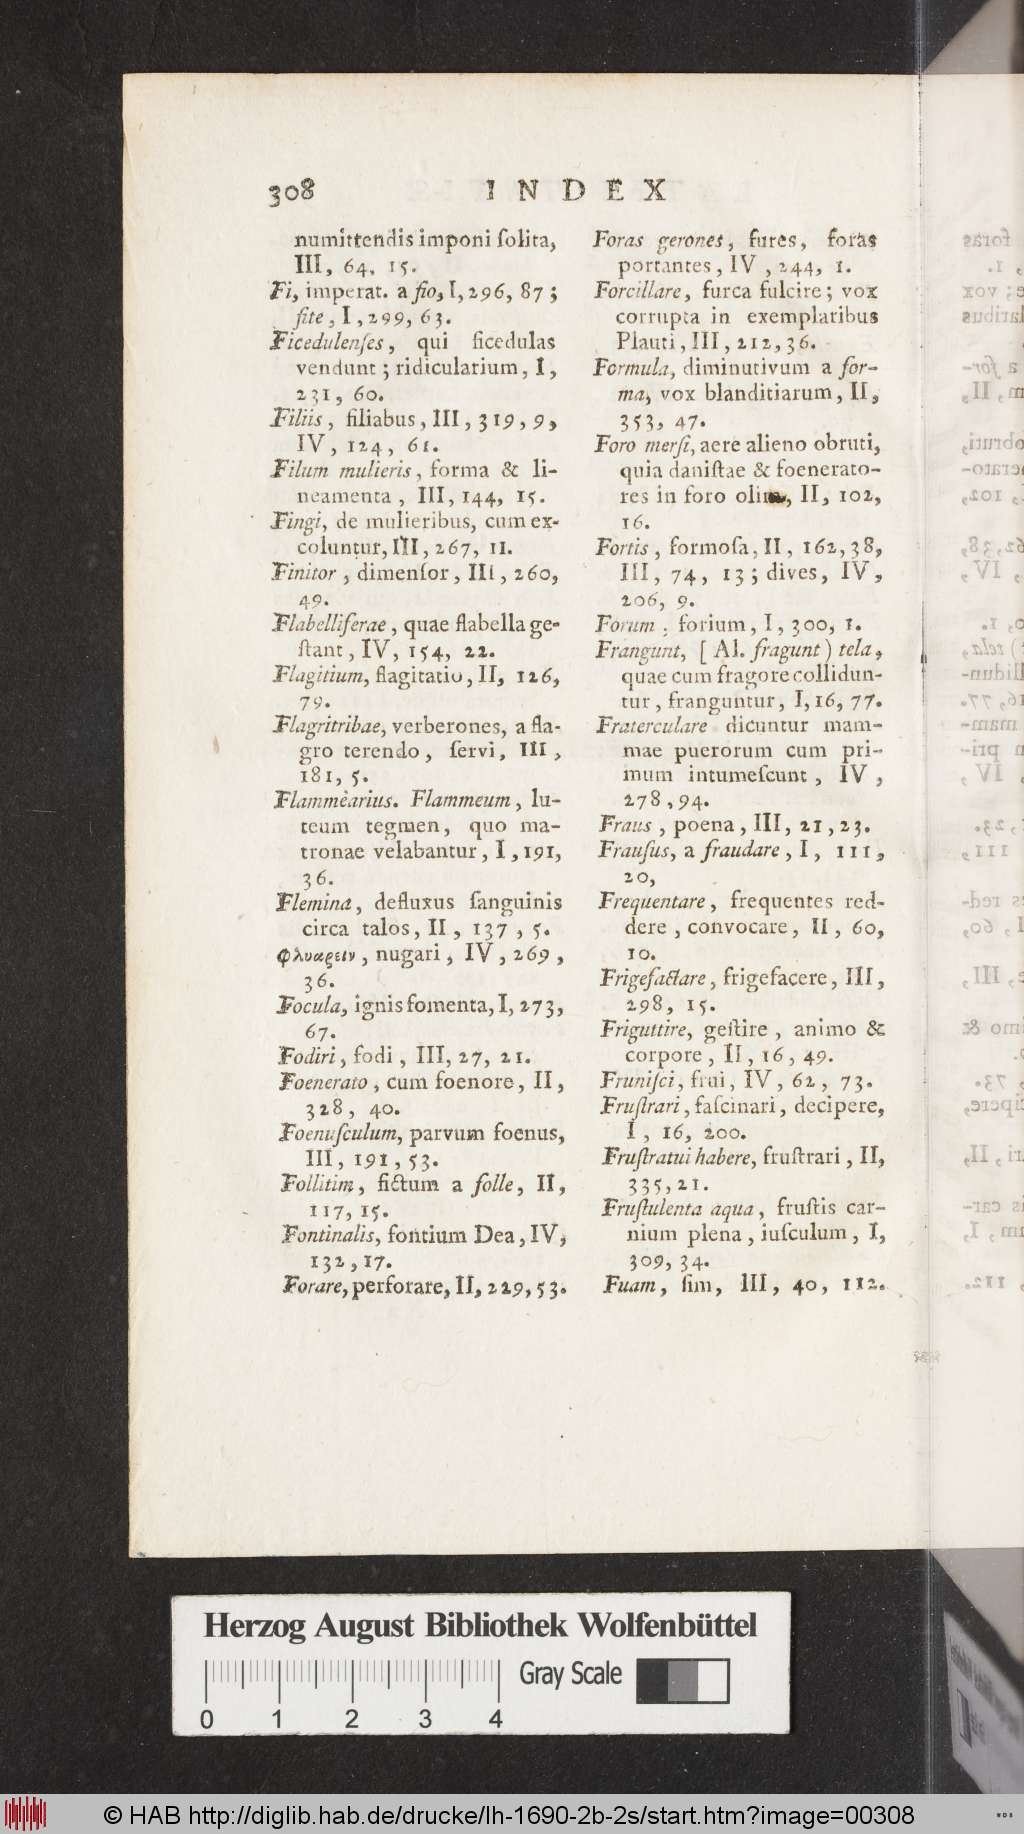 308 INDEX
numittendis imponi ſolita,
III, 64, 15.
Fi, imperat. a fio, I, 296, 87;
fite, I, 299, 63.
Ficedulenſes, qui ficedulas
vendunt; ridicularium, I,
231, 60.
Filiis, filiabus, III, 319, 9,
IV, 124, 61.
Filum mulieris, forma & li-
neamenta, III, 144, 15.
Fingi, de mulieribus, cum ex-
coluntur, III, 267, 11.
Finitor, dimenſor, III, 260,
49.
Flabelliferae, quae flabella ge-
ſtant, IV, 154, 22.
Flagitium, flagitatio, II, 126,
79.
Flagritribae, verberones, a fla-
gro terendo, ſervi, III,
181, 5.
Flammèarius. Flammeum, lu-
teum tegmen, quo ma-
tronae velabantur, I, 191,
36.
Flemina, defluxus ſanguinis
circa talos, II, 137, 5.
φλυαρειν, nugari, IV, 269,
36.
Focula, ignis fomenta, I, 273,
67.
Fodiri, fodi, III, 27, 21.
Foenerato, cum foenore, II,
328, 40.
Foenuſculum, parvum foenus,
III, 191, 53.
Follitim, fictum a folle, II,
117, 15.
Fontinalis, fontium Dea, IV,
132, 17.
Forare, perforare, II, 229, 53.
Foras gerones, fures, foras
portantes, IV, 244, 1.
Forcillare, furca fulcire; vox
corrupta in exemplaribus
Plauti, III, 212, 36.
Formula, diminutivum a for-
ma, vox blanditiarum, II,
353, 47.
Foro merſi, aere alieno obruti,
quia daniſtae & foenerato-
res in foro olim, II, 102,
16.
Fortis, formoſa, II, 162, 38,
III, 74, 13; dives, IV,
206, 9.
Forum, forium, I, 300, 1.
Frangunt, [Al. fragunt) tela,
quae cum fragore collidun-
tur, franguntur, I, 16, 77.
Fraterculare dicuntur mam-
mae puerorum cum pri-
mum intumeſcunt, IV,
278, 94.
Fraus, poena, III, 21, 23.
Frauſus, a fraudare, I, 111,
20,
Frequentare, frequentes red-
dere, convocare, II, 60,
10.
Frigefactare, frigefacere, III,
298, 15.
Friguttire, geſtire, animo &
corpore, II, 16, 49.
Fruniſci, frui, IV, 62, 73.
Fruſtrari, faſcinari, decipere,
I, 16, 200.
Fruſtratui habere, fruſtrari, II,
335, 21.
Fruſtulenta aqua, fruſtis car-
nium plena, iuſculum, I,
309, 34.
Fuam, ſim, III, 40, 112.
Herzog August Bibliothek Wolfenbüttel
Gray Scale
0 1 2 3 4
© HAB http://diglib.hab.de/drucke/lh-1690-2b-2s/start.htm?image=00308